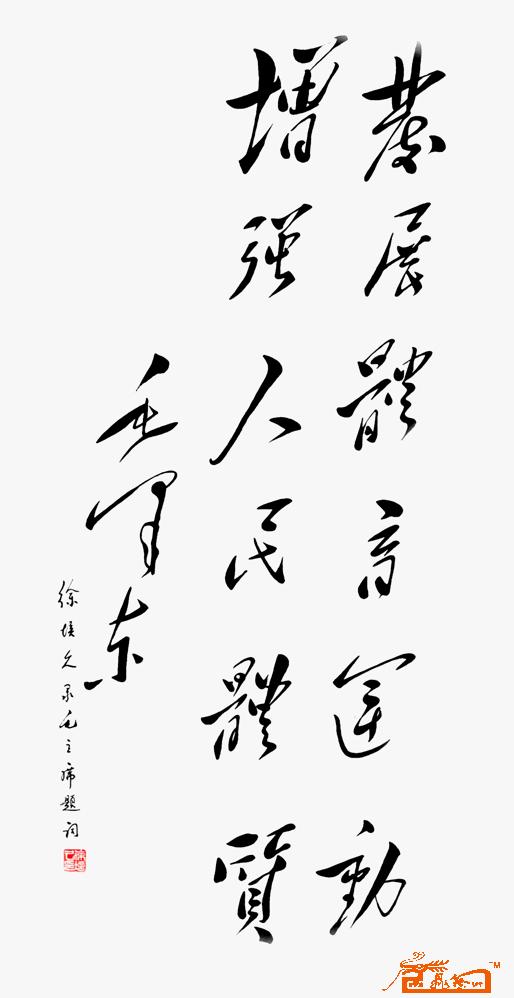 發展體育運動
增强人民體質
毛泽东
徐培久录毛主席题词
TM